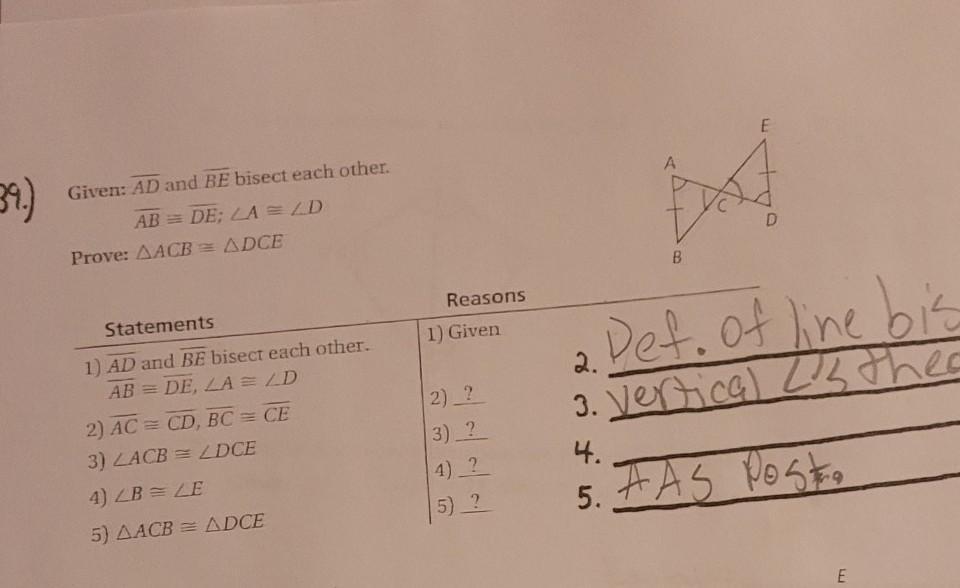 39.)
Given: AD and BE bisect each other.
AB ≅ DE; ∠A ≅ ∠D
Prove: △ACB ≅ △DCE
A
E
C
D
B
Statements
Reasons
1) AD and BE bisect each other.
AB ≅ DE, ∠A ≅ ∠D
1) Given
2) AC ≅ CD, BC ≅ CE
2) ?
3) ∠ACB ≅ ∠DCE
3) ?
4) ∠B ≅ ∠E
4) ?
5) △ACB ≅ △DCE
5) ?
2. Def. of line bis
3. Vertical ∠'s theo
4.
5. AAS Post.
E